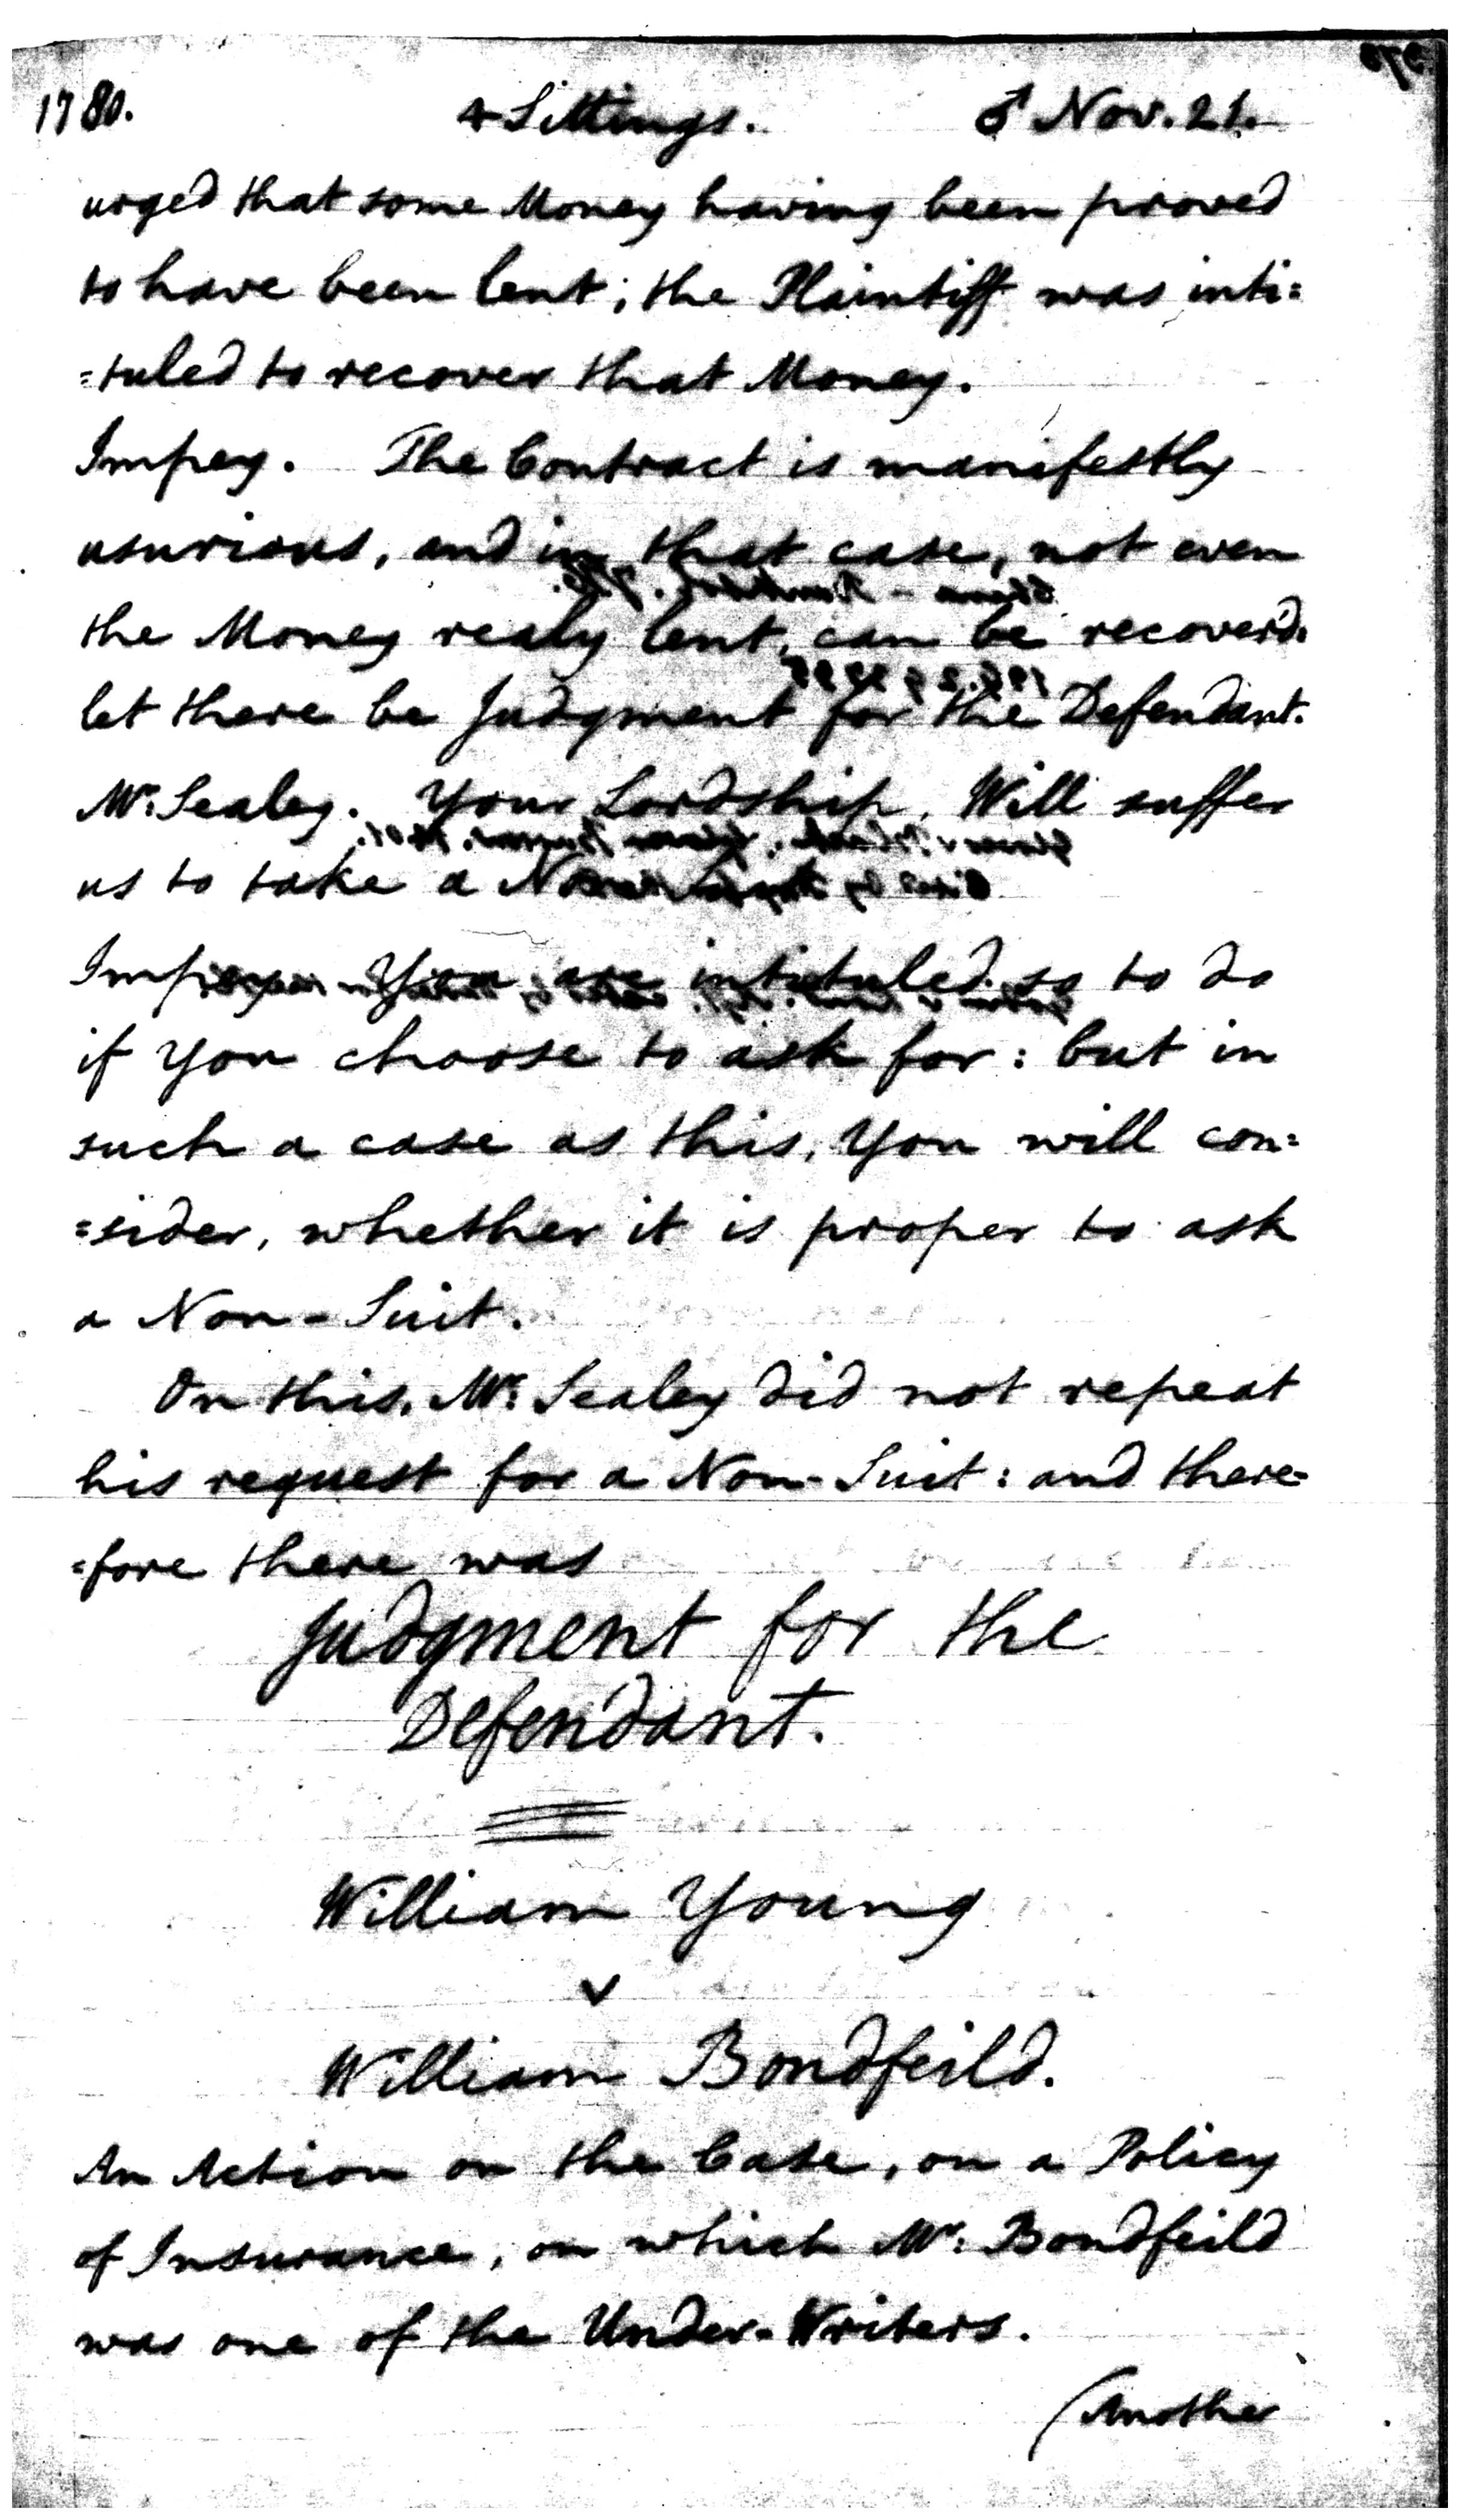 1780. 4 Sittings. ♂ Nov. 21.
urged that some Money having been proved
to have been lent; the Plaintiff was inti=
=tuled to recover that Money.
Impey. The Contract is manifestly
usurious, and in that case, not even
the Money realy lent, can be recoverd.
let there be Judgment for the Defendant.
Mr. Sealey. Your Lordship, Will suffer
us to take a
Impey. You are intituled so to do
if You choose to ask for: but in
such a case as this, You will con=
=sider, whether it is proper to ask
a Non-Suit.
On this, Mr. Sealey did not repeat
his request for a Non-Suit: and there=
=fore there was
Judgment for the
Defendant.
William Young
v
William Bondfeild.
An Action on the Case, on a Policy
of Insurance, on which Mr. Bondfeild
was one of the Under-Writers.
(Another